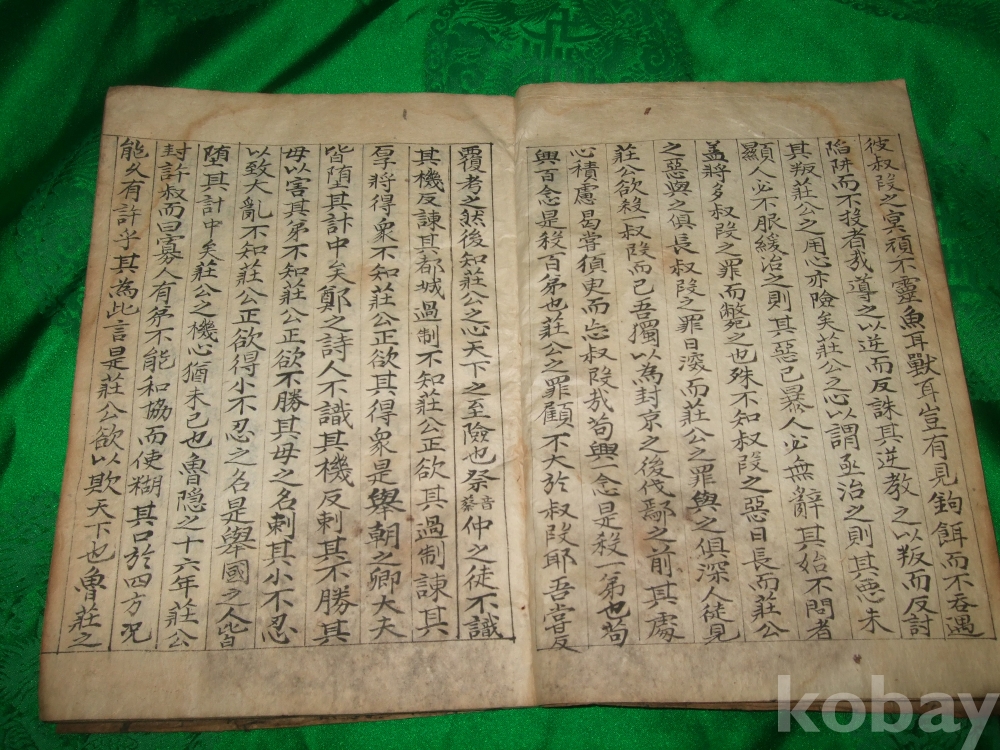 彼叔段之冥頑不靈魚耳獸耳豈有見鉤餌而不吞遇
陷阱而不投者哉導之以逆而反誅其逆教之以叛而反討
其叛莊公之用心亦險矣莊公之心以謂亟治之則其悪未
顯人必不服緩治之則其惡已暴人必無辭其始不問者
盖將多叔段之罪而斃之也殊不知叔段之惡日長而莊公
之惡與之俱長叔段之罪日深而莊公之罪與之俱深人徒見
莊公欲殺叔段而已吾獨以為封京之後伐鄢之前其處
心積慮曷嘗須臾而忘叔段哉苟興一念是殺一弟也苟
興百念是殺百弟也莊公之罪顧不大於叔段耶吾嘗反
覆考之然後知莊公之心天下之至險也祭音蔡仲之徒不識
其機反諫其都城過制不知莊公正欲其過制諫其
厚將得眾不知莊公正欲其得眾是舉朝之卿大夫
皆堕其計中矣鄭之詩人不識其機反刺其不勝其
母以害其弟不知莊公正欲不勝其母之名刺其小不忍
以致大亂不知莊公正欲得小不忍之名是舉國之人皆
堕其計中矣莊公之機心猶未已也魯隐之十六年莊公
封許叔而曰寡人有弟不能和協而使糊其口於四方况
能久有許乎其為此言是莊公欲以欺天下也魯莊之
kobay